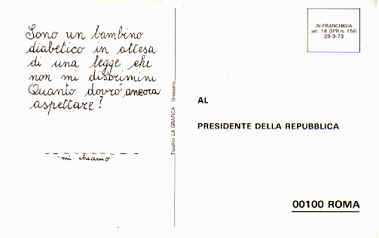 Sono un bambino
diabetico in attesa
di una legge che
non mi discrimini
Quanto dovrò ancora
aspettare?
mi chiamo
IN FRANCHIGIA
AL
PRESIDENTE DELLA REPUBBLICA
00100 ROMA